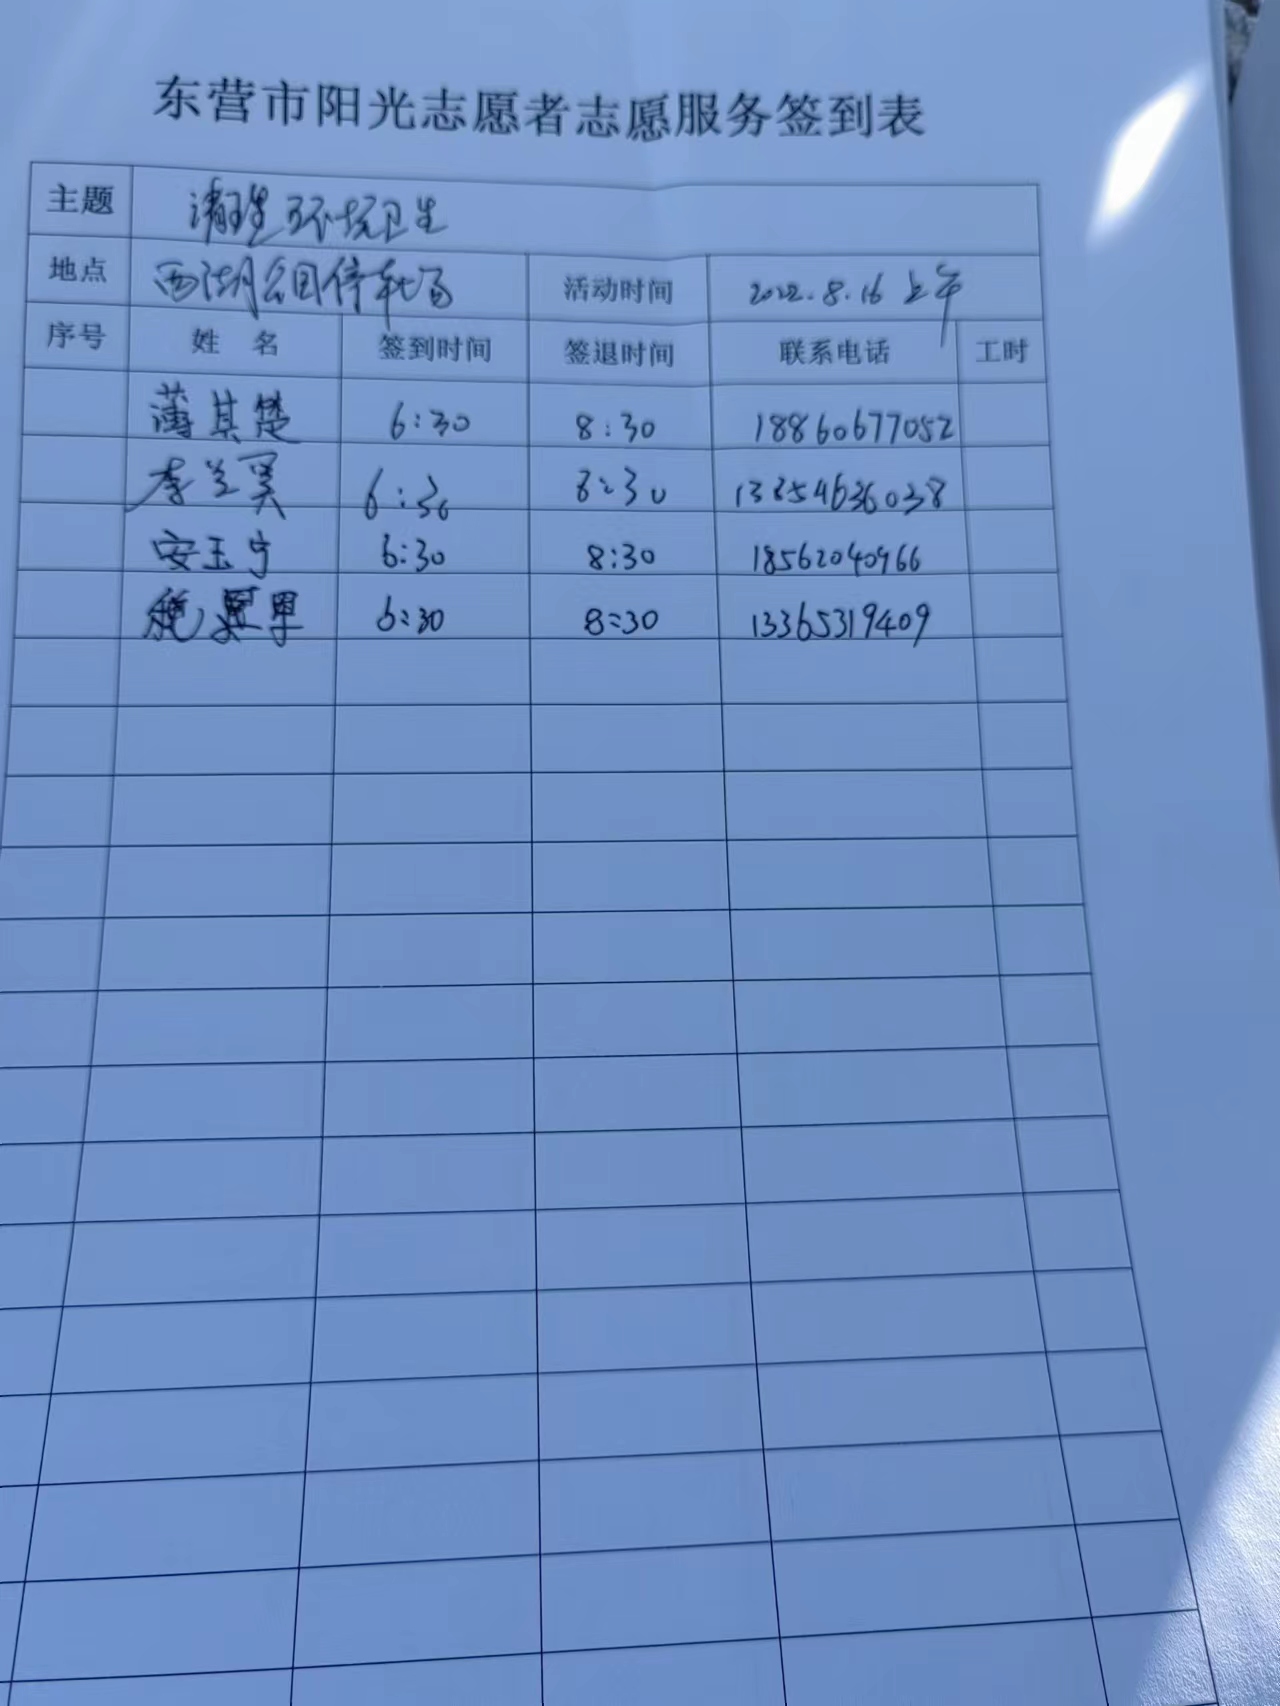 东营市阳光志愿者志愿服务签到表
主题 清理环境卫生
地点 西湖公园停车场 活动时间 2022.8.16 上午
序号 姓名 签到时间 签退时间 联系电话 工时
薄其楚 6:30 8:30 18860677052
李兰英 6:30 8:30 13254636038
安玉宁 6:30 8:30 18562040966
6:30 8:30 13365319409